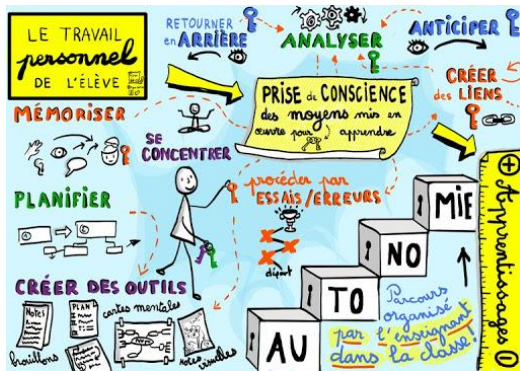 LE TRAVAIL
personnel
DE L'ÉLÈVE
RETOURNER
en ARRIÈRE
ANALYSER
ANTICIPER
CRÉER
des LIENS
MÉMORISER
SE
CONCENTRER
PRISE de CONSCIENCE
des moyens mis en
œuvre pour apprendre
PLANIFIER
procéder par
ESSAIS/ERREURS
départ
CRÉER DES OUTILS
NOTES
PLAN
cartes mentales
brouillons
notes
visuelles
AU
TO
NO
MIE
Parcours
organisé
par l'enseignant
dans la classe!
+ Apprentissages -